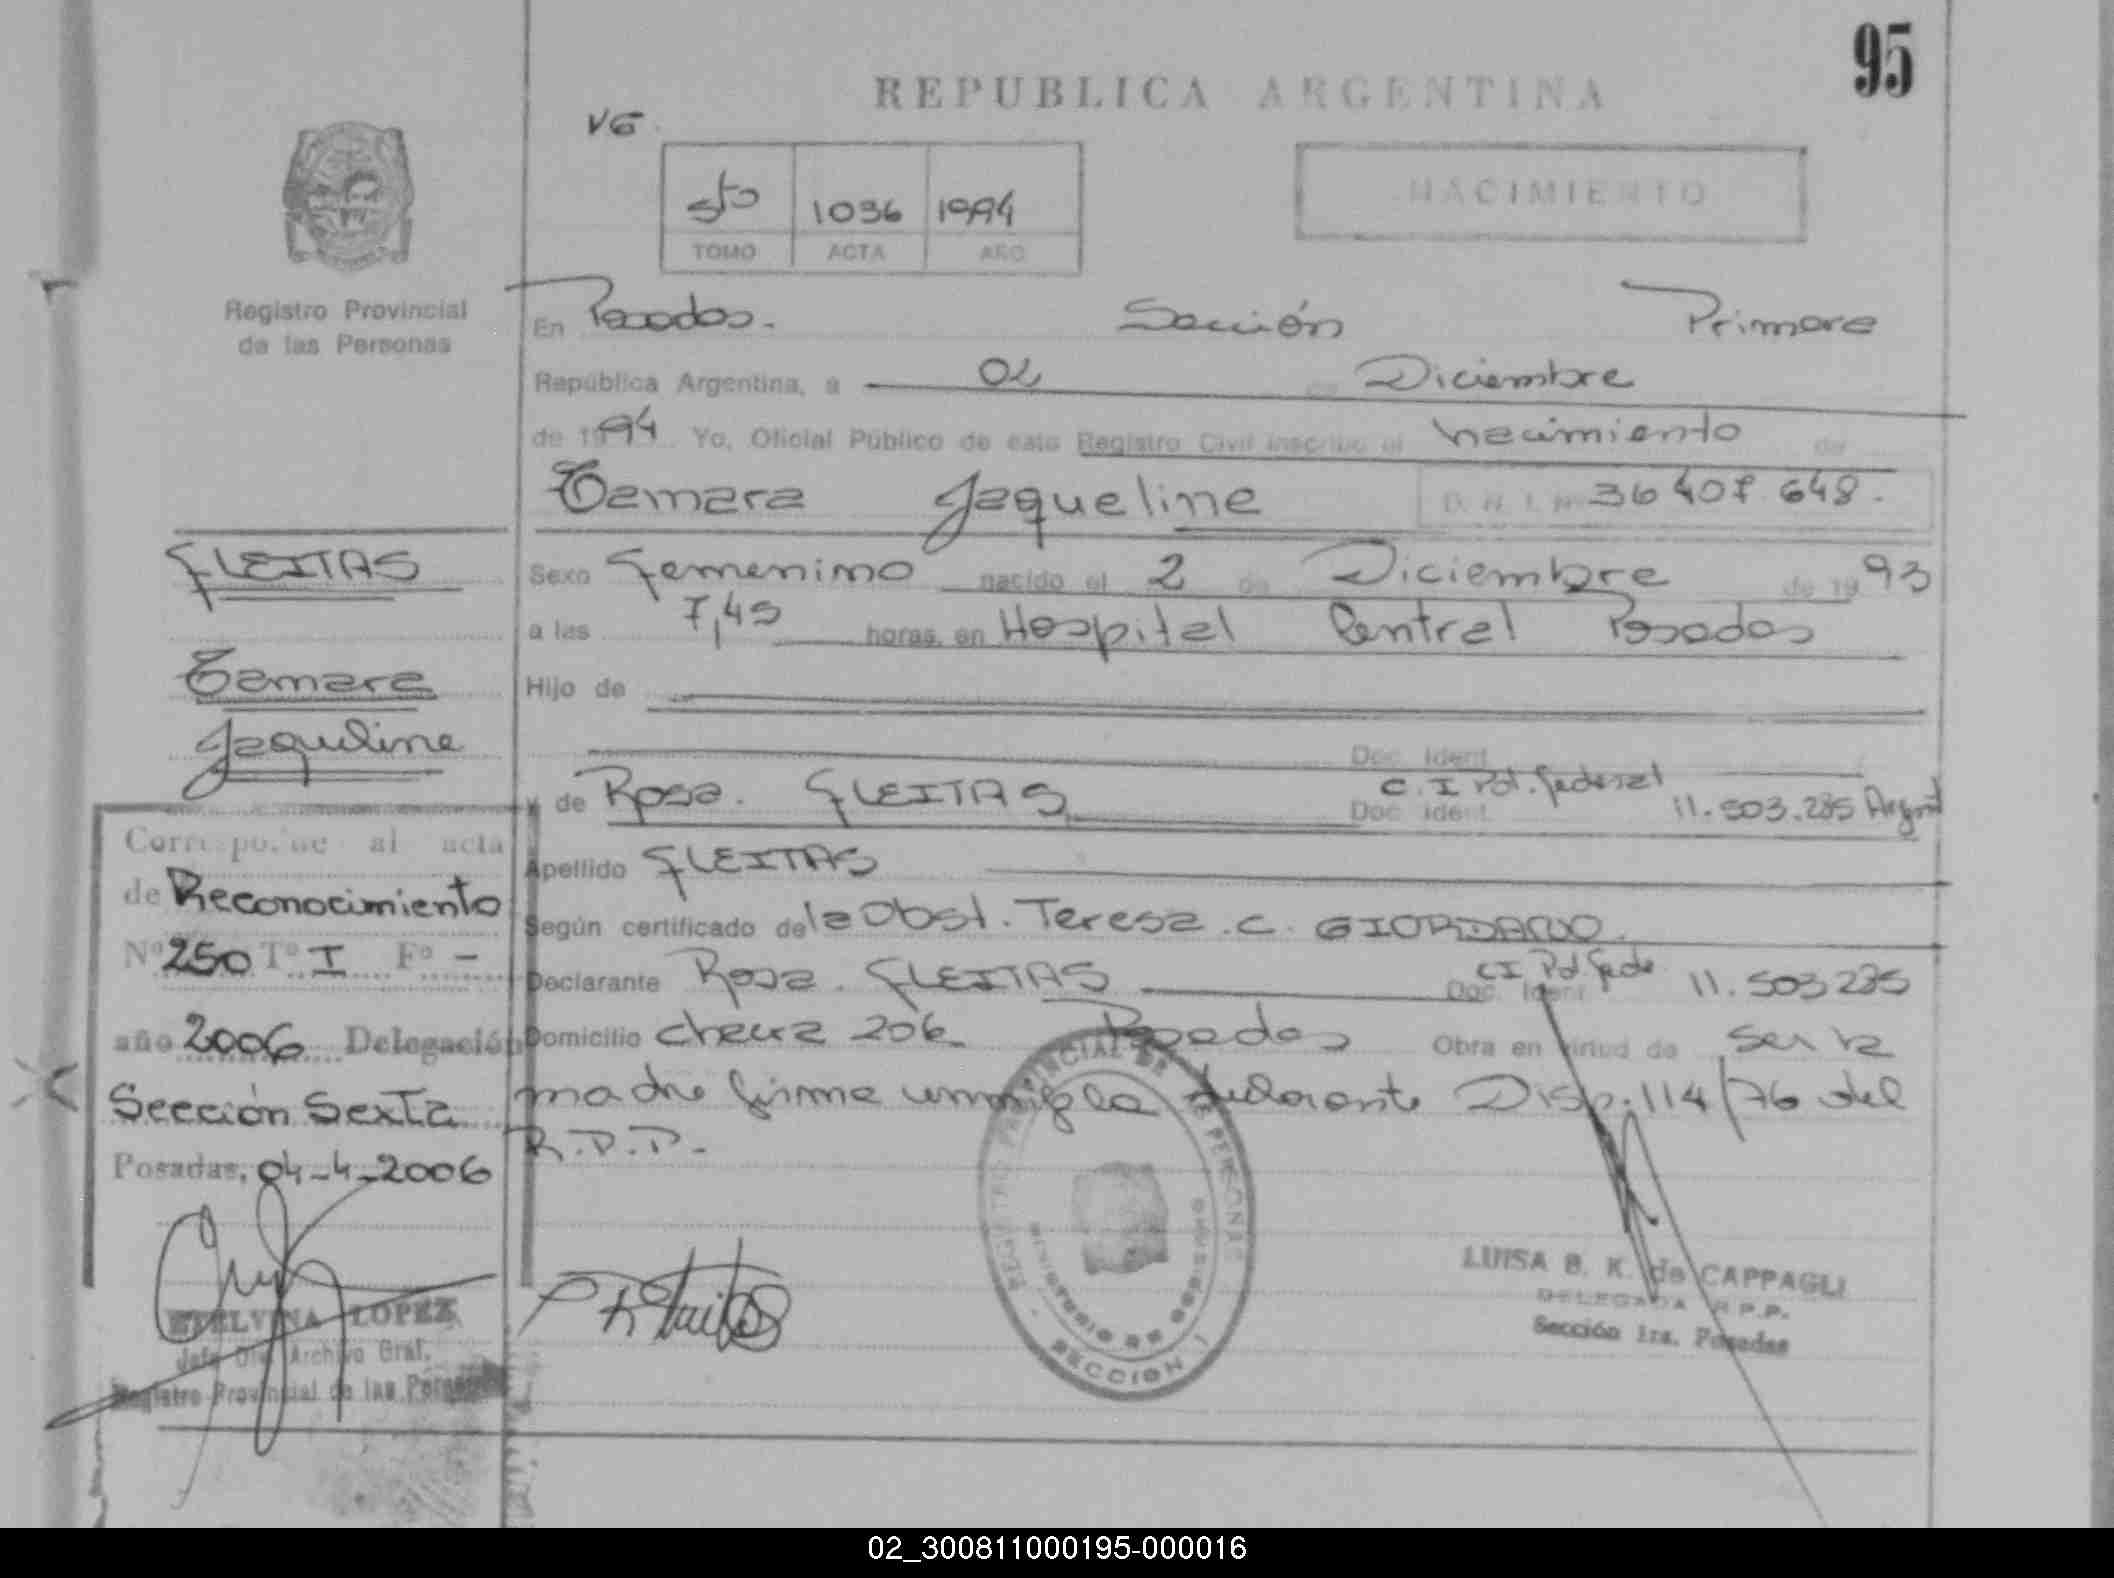 95
REPUBLICA ARGENTINA
VG
5to 1036 1994
TOMO ACTA AÑO
NACIMIENTO
Registro Provincial
de las Personas
En Posadas. Sección Primera
República Argentina, a 02 de Diciembre
de 1994 Yo, Oficial Público de este Registro Civil inscribo el nacimiento de
Tamara Jaqueline D. N. I. Nº 36 407 648.
Sexo Femenino nacido el 2 de Diciembre de 1993
a las 7,45 horas, en Hospital Central Posadas
Hijo de
Doc. Ident.
y de Rosa. FLEITAS Doc. Ident. C. I Pol. Federal 11.503.285 Argent
Apellido FLEITAS
Según certificado de la Obst. Teresa. C. GIORDANO.
Declarante Rosa. FLEITAS Doc. Ident CI Pol. Fede 11.503285
Domicilio 206 Posadas Obra en virtud de ser la
madre firma la declarante Disp. 114/76 del
R.P.P.
FLEITAS
Tamara
Jaqueline
Corresponde al acta
de Reconocimiento
Nº 250 Tº I Fº -
año 2006 Delegación
Sección Sexta
Posadas, 04-4-2006
ETELVINA LOPEZ
Jefa Archivo Gral.
Registro Provincial de las Personas
REGISTRO PROVINCIAL DE PERSONAS
MINISTERIO DE GOBIERNO
SECCION 1
LUISA B. K. de CAPPAGLI
DELEGADA R.P.P.
Sección 1ra. Posadas
02_300811000195-000016